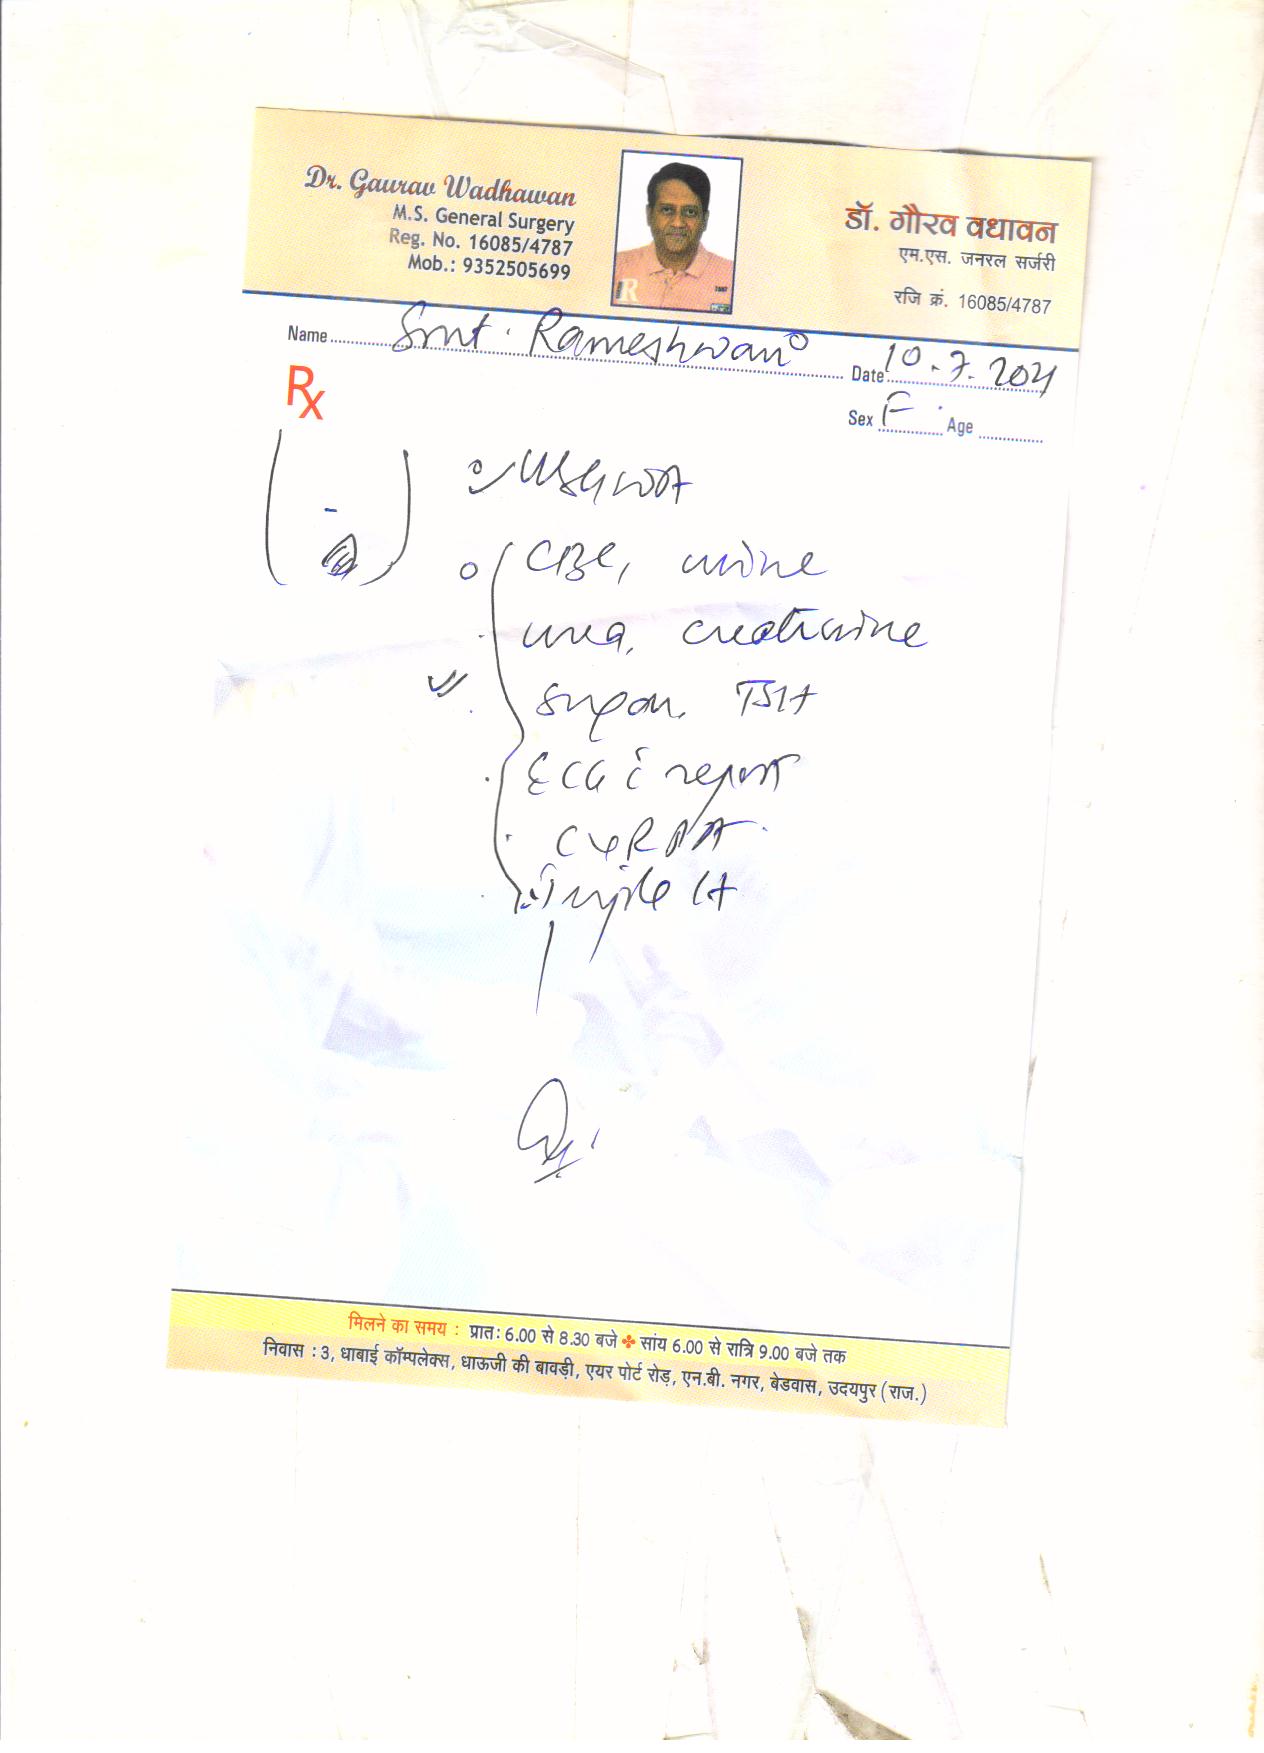 Dr. Gaurav Wadhawan
M.S. General Surgery
Reg. No. 16085/4787
Mob.: 9352505699
डॉ. गौरव वधावन
एम.एस. जनरल सर्जरी
रजि क्रं. 16085/4787
Name Smt. Rameshwari Date 10.7.2021
Sex F Age
Rx
CBC, urine
urea, creatinine
Sugar, TSH
ECG c report
CXR PA
मिलने का समय : प्रातः 6.00 से 8.30 बजे ✤ सांय 6.00 से रात्रि 9.00 बजे तक
निवास : 3, धाबाई कॉम्पलेक्स, धाऊजी की बावड़ी, एयर पोर्ट रोड़, एन.बी. नगर, बेडवास, उदयपुर (राज.)